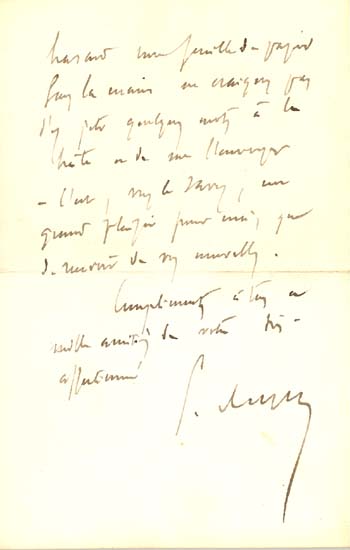 hasard une feuille de papier
sous la main ne craignez pas
d'y jeter quelques mots à la
hâte et de me l'envoyer
- C'est, vous le savez, un
grand plaisir pour moi, que
de recevoir de vos nouvelles.
Compliments à tous et
mille amitiés de votre très-
affectionné